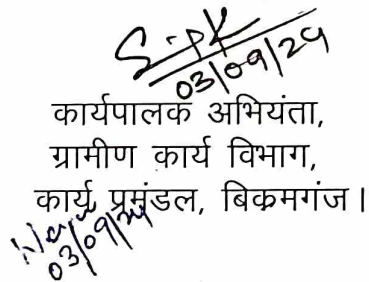 03/09/24
कार्यपालक अभियंता,
ग्रामीण कार्य विभाग,
कार्य प्रमंडल, बिकमगंज।
03/09/24